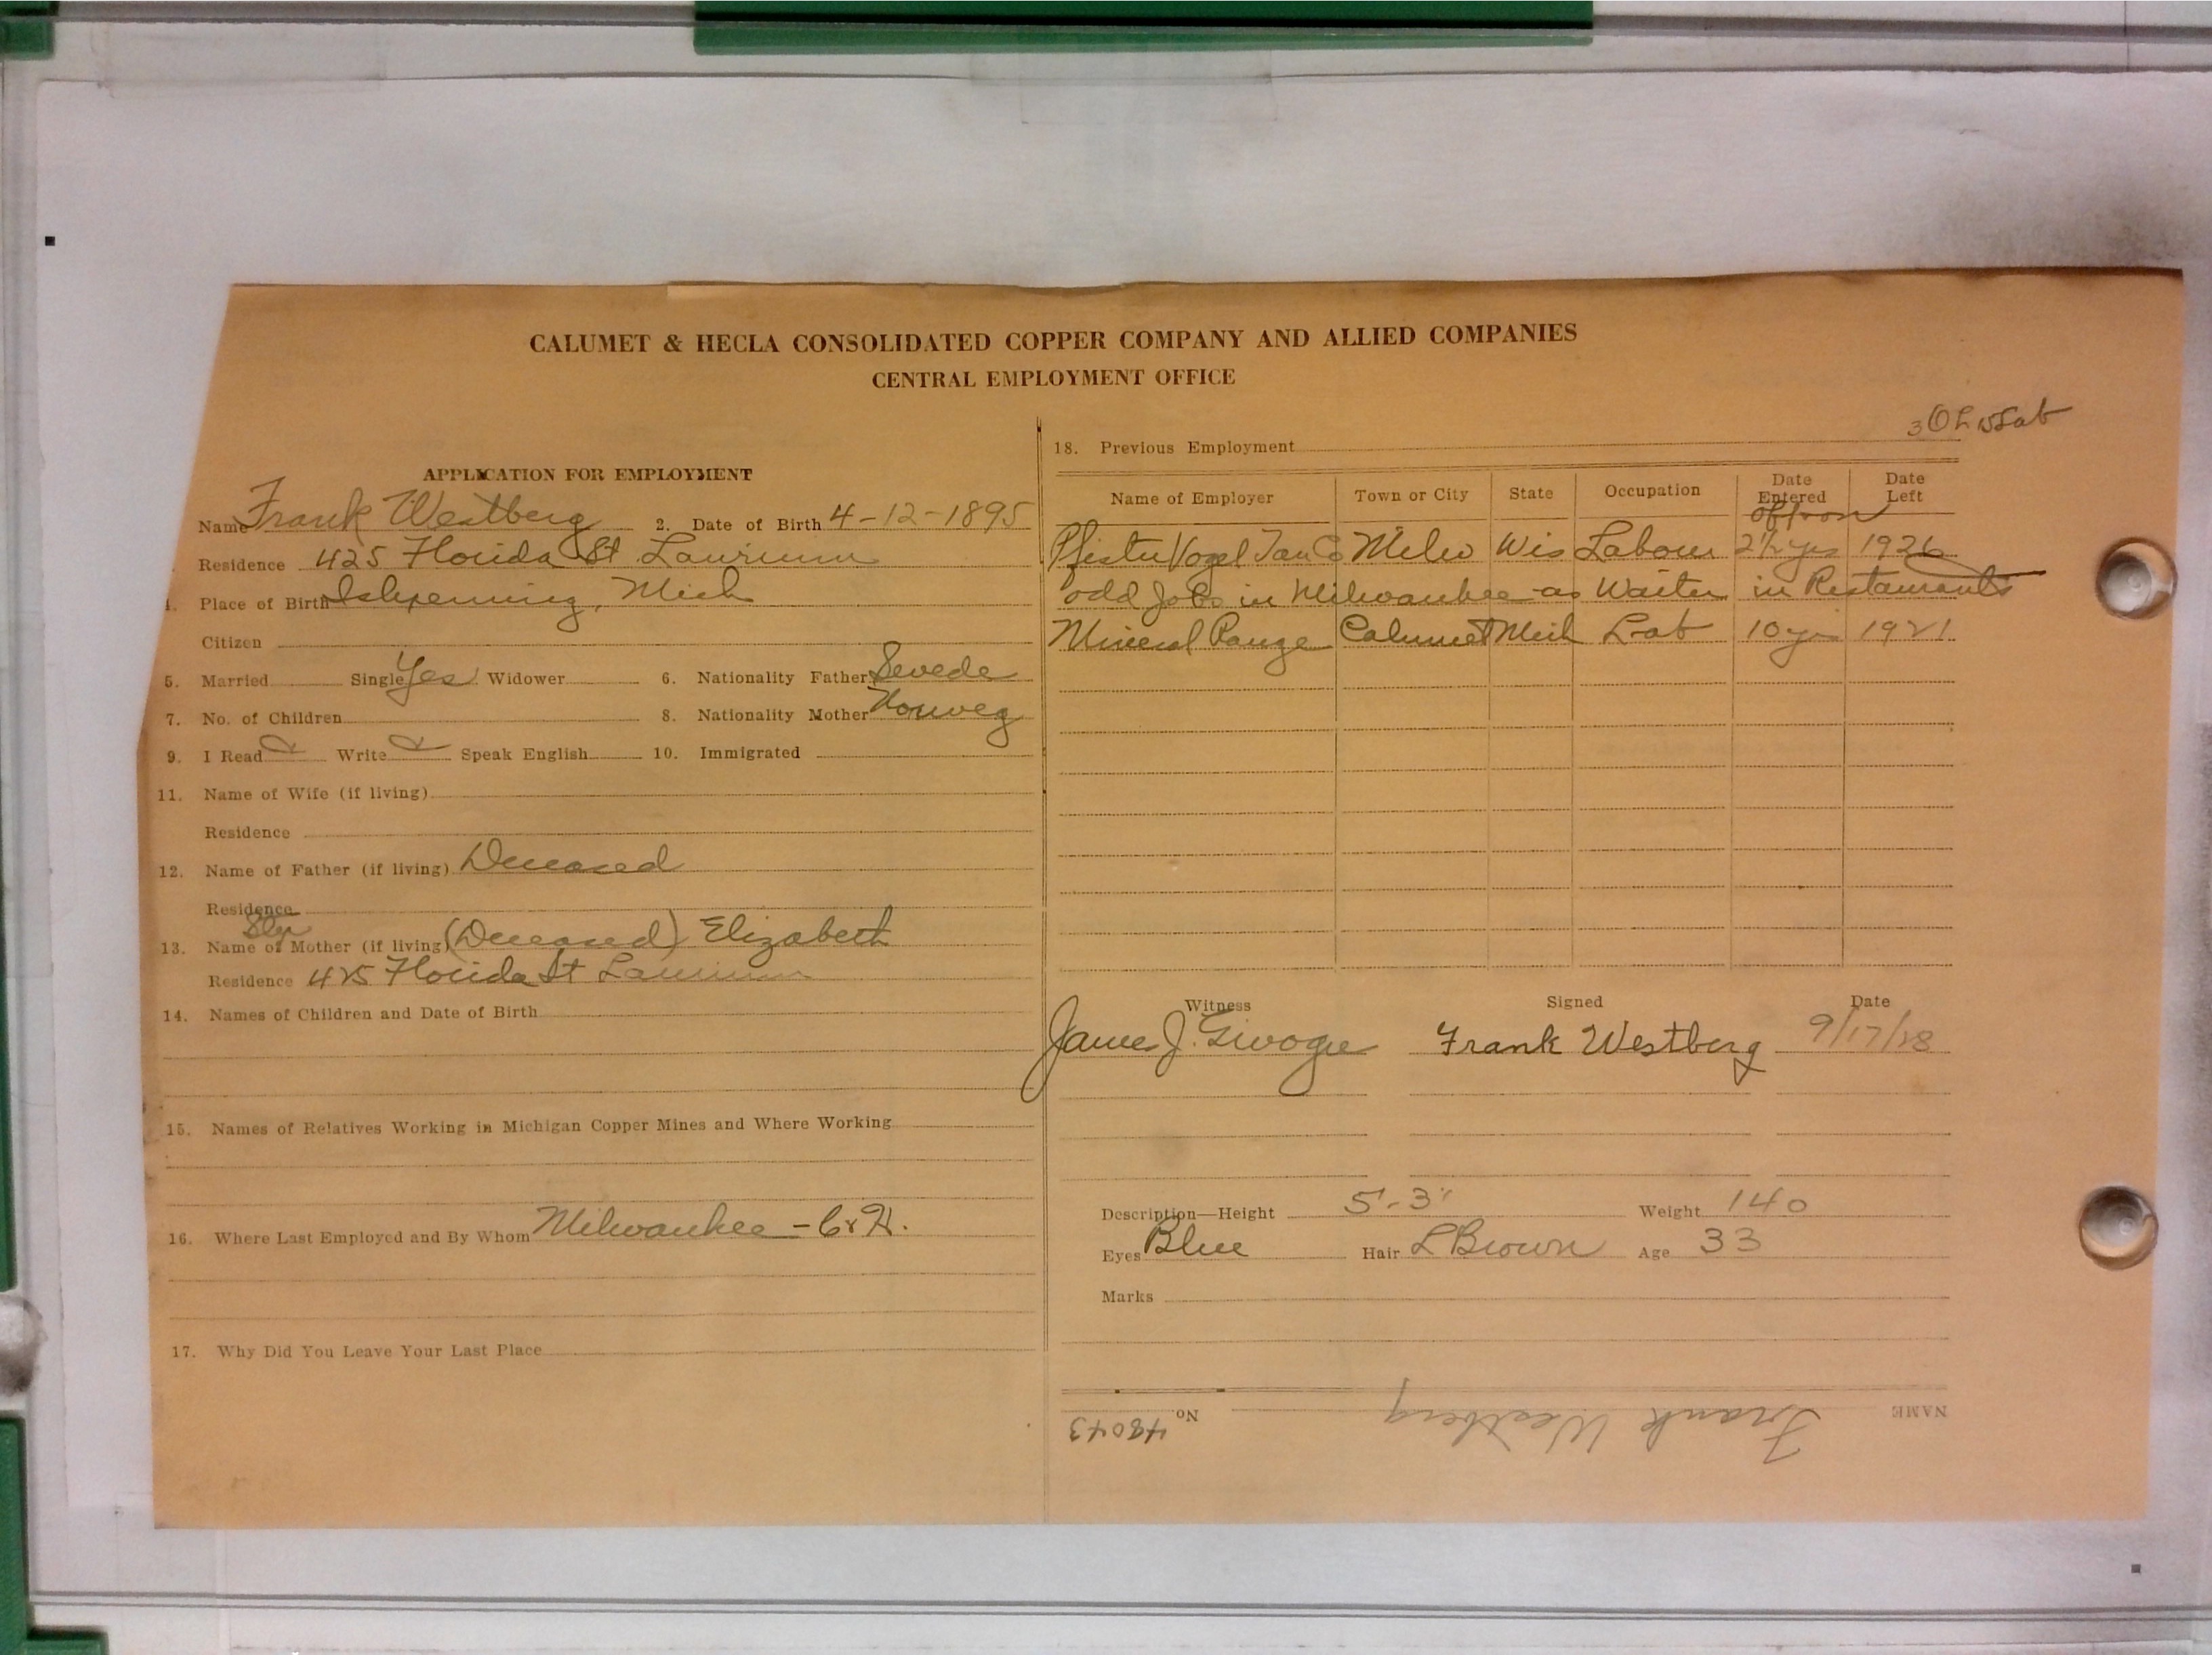 CALUMET & HECLA CONSOLIDATED COPPER COMPANY AND ALLIED COMPANIES
CENTRAL EMPLOYMENT OFFICE
APPLICATION FOR EMPLOYMENT
Name Frank Westberg 2. Date of Birth 4-12-1895
Residence 425 Florida St Laurium
Place of Birth Ishpenning, Mich
Citizen
5. Married Single Yes Widower 6. Nationality Father Swede
7. No. of Children 8. Nationality Mother Norweg
9. I Read Write Speak English 10. Immigrated
11. Name of Wife (if living)
Residence
12. Name of Father (if living) Deceased
Residence
13. Name of Mother (if living) (Deceased) Elizabeth
Residence 425 Florida St Laurium
14. Names of Children and Date of Birth
15. Names of Relatives Working in Michigan Copper Mines and Where Working
16. Where Last Employed and By Whom Milwaukee - C&H.
17. Why Did You Leave Your Last Place
18. Previous Employment
Name of Employer Town or City State Occupation Date Entered Date Left
off & on
Pfister Vogel Tan Co Milw Wis Labour 2½ yrs 1926
odd Jobs in Milwaukee as Waiter in Restaurants
Mineral Range Calumet Mich Lab 10 yrs 1921
Witness Signed Date
James J. Frank Westberg 9/17/28
Description—Height 5'-3" Weight 140
Eyes Blue Hair L Brown Age 33
Marks
NAME Frank Westberg No. 48043